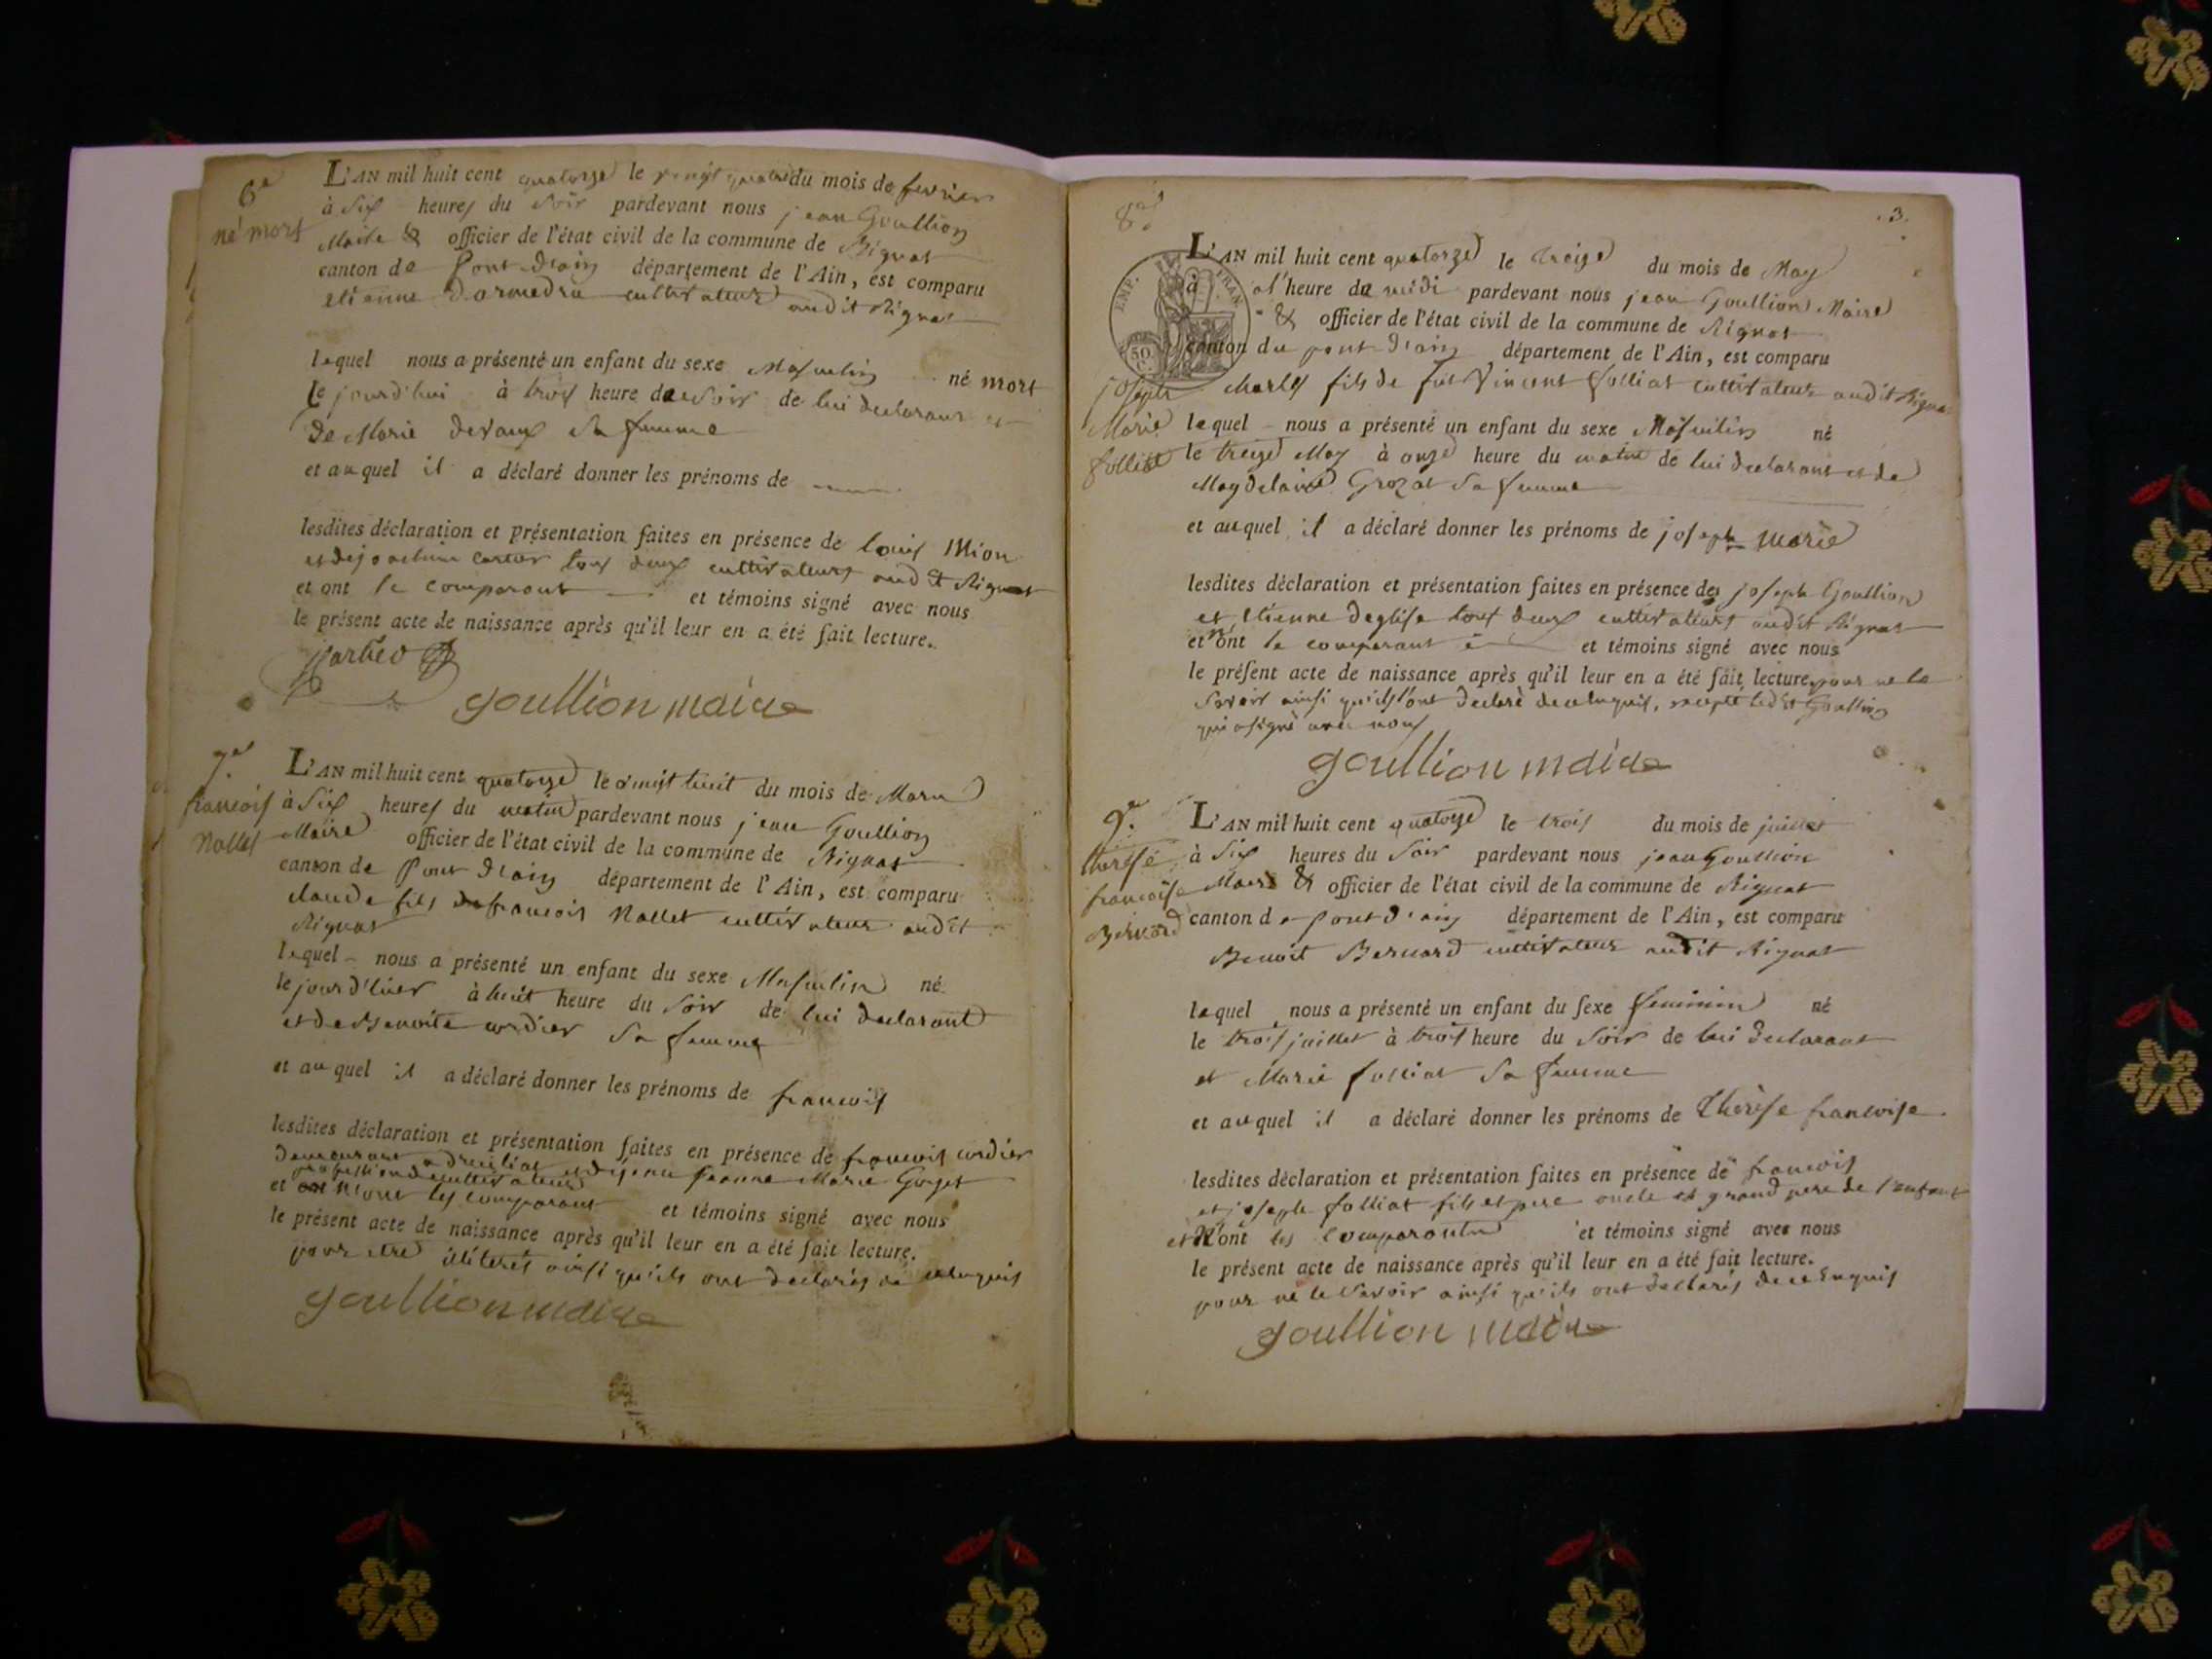 6e
né mort
L'AN mil huit cent quatorze le vingt quatre du mois de fevrier
à Six heures du Soir pardevant nous jean Goullion
Maire & officier de l'état civil de la commune de Rignat
canton de Pont d'ain département de l'Ain, est comparu
etienne Dormedru cultivateur audit Rignat
lequel nous a présenté un enfant du sexe Masculin né mort
le jourd'hui à trois heure de Soir de lui declarant et
De Marie devaux Sa femme
et auquel il a déclaré donner les prénoms de
lesdites déclaration et présentation faites en présence de Louis Mion
et de joachim tous deux cultivateurs audit Rignat
et ont le comparant et témoins signé avec nous
le présent acte de naissance après qu'il leur en a été fait lecture.
goullion maire
7e
francois
Nallet
L'AN mil huit cent quatorze le vingt huit du mois de Mars
à Six heures du matin pardevant nous jean Goullion
Maire officier de l'état civil de la commune de Rignat
canton de Pont d'ain département de l'Ain, est comparu
claude fils de francois Nallet cultivateur audit
Rignat
lequel nous a présenté un enfant du sexe Masculin né
le jour d'hier à huit heure du Soir de lui declarant
et de Benoite cordier Sa femme
et auquel il a déclaré donner les prénoms de francois
lesdites déclaration et présentation faites en présence de francois cordier
demeurant a druilliat et de jeanne Marie Goyet
profession de cultivateur
et n'ont les comparant et témoins signé avec nous
le présent acte de naissance après qu'il leur en a été fait lecture.
pour etre iliterés ainsi qu'ils ont declarés de ce enquis
goullion maire
8e
.3.
EMP. FRAN.
50 C.
L'AN mil huit cent quatorze le treize du mois de May
à l'heure de midi pardevant nous jean Goullion Maire
& officier de l'état civil de la commune de Rignat
canton du pont d'ain département de l'Ain, est comparu
joseph
Marie
folliat
Charles fils de fut Vincent folliat cultivateur audit Rignat
lequel nous a présenté un enfant du sexe Masculin né
le treize May à onze heure du matin de lui declarant et de
Magdelaine Grozat Sa femme
et auquel il a déclaré donner les prénoms de joseph marie
lesdites déclaration et présentation faites en présence de joseph Goullion
et etienne deglise tous deux cultivateurs audit Rignat
et n'ont le comparant et témoins signé avec nous
le présent acte de naissance après qu'il leur en a été fait lecture pour ne le
Savoir ainsi qu'ils l'ont declaré de ce enquis, excepté ledit Goullion
qui a signé avec nous
goullion maire
9e
therese
francoise
Bernard
L'AN mil huit cent quatorze le trois du mois de juillet
à Six heures du Soir pardevant nous jean Goullion
Maire & officier de l'état civil de la commune de Rignat
canton de pont d'ain département de l'Ain, est comparu
Benoit Bernard cultivateur audit Rignat
lequel nous a présenté un enfant du sexe feminin né
le trois juillet à trois heure du Soir de lui declarant
et Marie folliat Sa femme
et auquel il a déclaré donner les prénoms de therèse francoise
lesdites déclaration et présentation faites en présence de francois
et joseph folliat fils et pere oncle et grand pere de l'enfant
et N'ont les comparants et témoins signé avec nous
le présent acte de naissance après qu'il leur en a été fait lecture.
pour ne le Savoir ainsi qu'ils ont declarés de ce Enquis
goullion maire